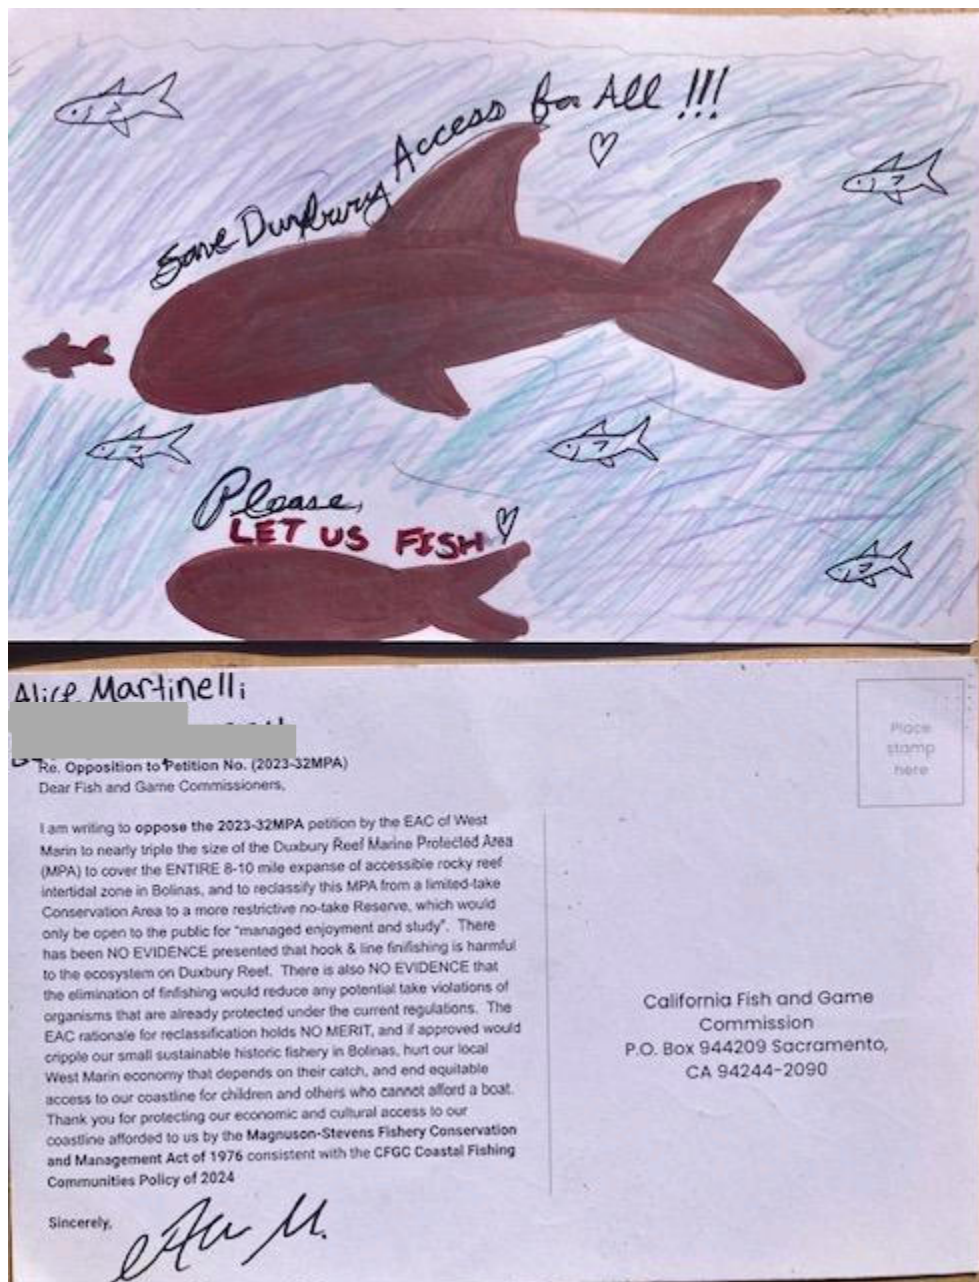 Save Duxbury Access for All !!!
Please,
LET US FISH
Alice Martinelli
Re. Opposition to Petition No. (2023-32MPA)
Dear Fish and Game Commissioners,
I am writing to oppose the 2023-32MPA petition by the EAC of West
Marin to nearly triple the size of the Duxbury Reef Marine Protected Area
(MPA) to cover the ENTIRE 8-10 mile expanse of accessible rocky reef
intertidal zone in Bolinas, and to reclassify this MPA from a limited-take
Conservation Area to a more restrictive no-take Reserve, which would
only be open to the public for "managed enjoyment and study". There
has been NO EVIDENCE presented that hook & line finifishing is harmful
to the ecosystem on Duxbury Reef. There is also NO EVIDENCE that
the elimination of finfishing would reduce any potential take violations of
organisms that are already protected under the current regulations. The
EAC rationale for reclassification holds NO MERIT, and if approved would
cripple our small sustainable historic fishery in Bolinas, hurt our local
West Marin economy that depends on their catch, and end equitable
access to our coastline for children and others who cannot afford a boat.
Thank you for protecting our economic and cultural access to our
coastline afforded to us by the Magnuson-Stevens Fishery Conservation
and Management Act of 1976 consistent with the CFGC Coastal Fishing
Communities Policy of 2024
Sincerely,
Place
stamp
here
California Fish and Game
Commission
P.O. Box 944209 Sacramento,
CA 94244-2090